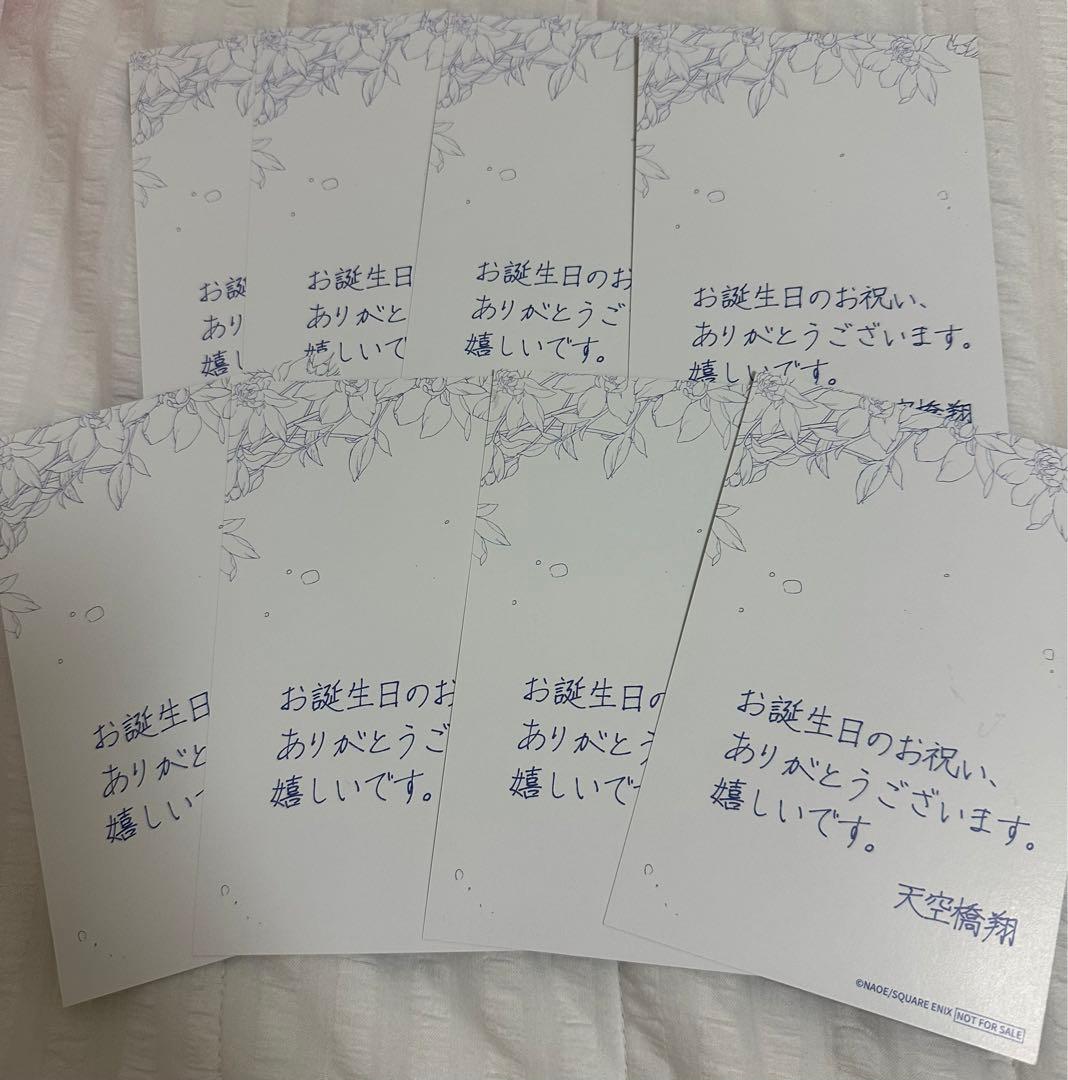 お誕
あり
嬉し
お誕生日
ありがと
嬉しいで
お誕生日のお
ありがとうご
嬉しいです。
お誕生日のお祝い、
ありがとうございます。
嬉しいです。
空橋翔
お誕生日
ありがと
嬉しい
お誕生日のお
ありがとうご
嬉しいです。
お誕生日の
ありがとう
嬉しいで
お誕生日のお祝い、
ありがとうございます。
嬉しいです。
天空橋翔
©NAOE/SQUARE ENIX NOT FOR SALE